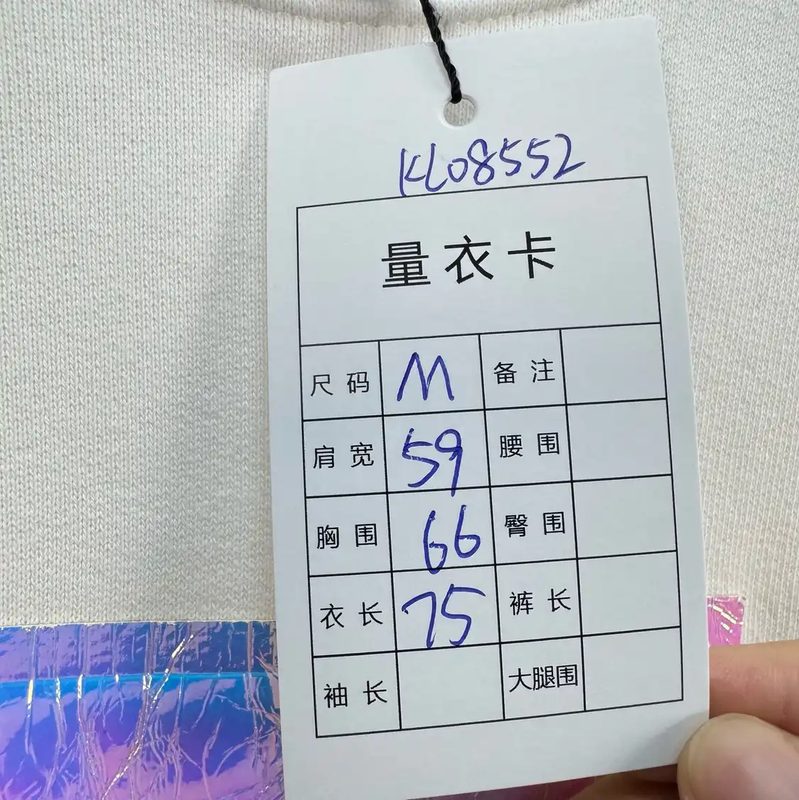 KL08552
量衣卡
尺码 M 备注
肩宽 59 腰围
胸围 66 臀围
衣长 75 裤长
袖长 大腿围